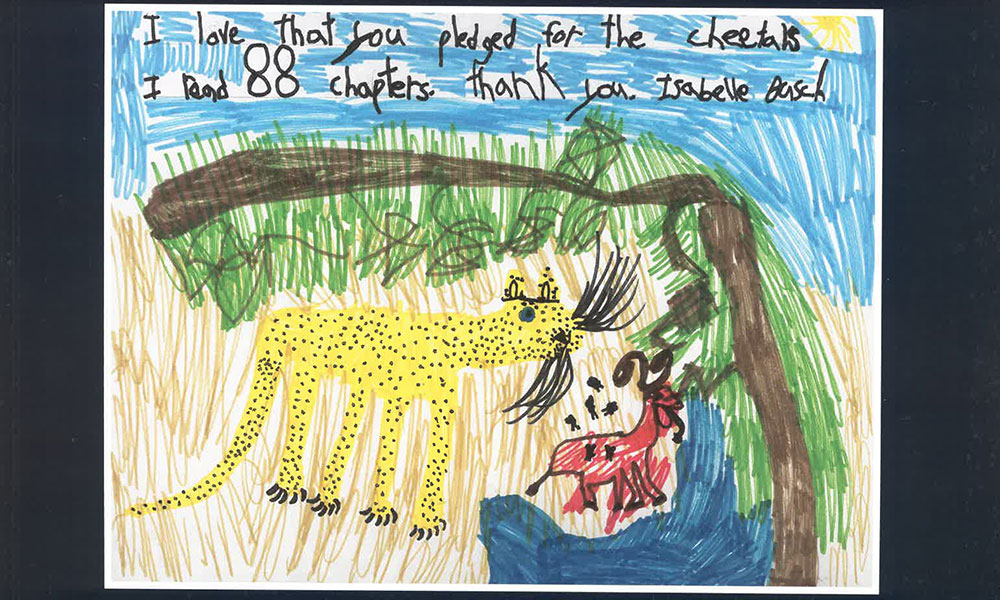 I love that you pledged for the cheetahs
I Read 88 chapters. thank you. Isabelle Busch